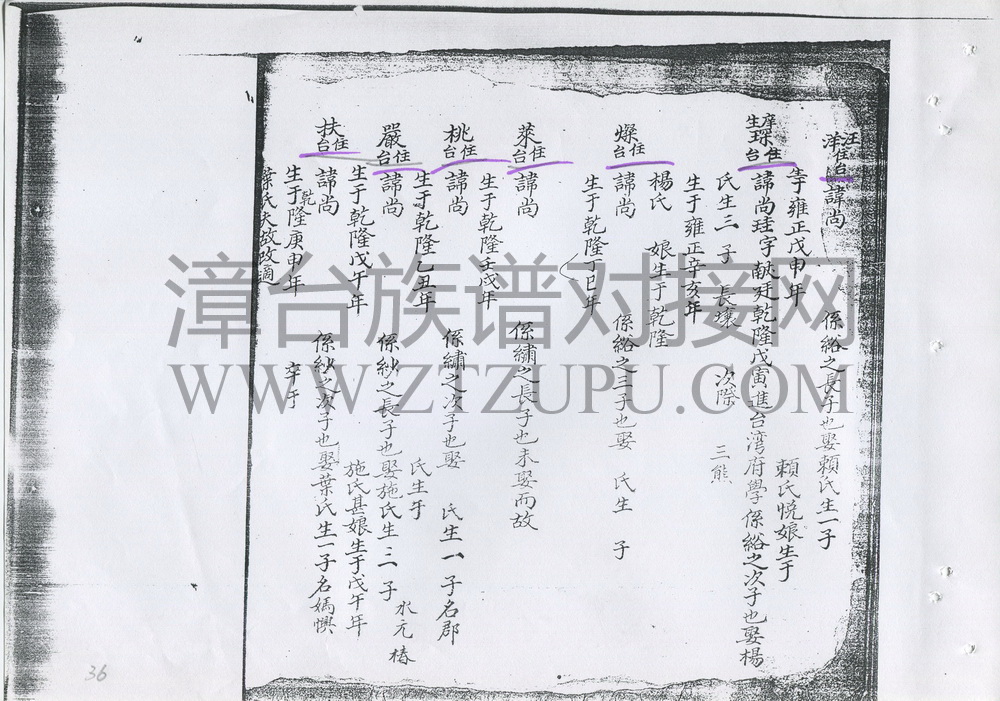 汪洋 住台 諱尚 係綌之長子也娶賴氏生一子
生于雍正戊申年 賴氏悅娘生于
庠生 住台 諱尚珪字献廷乾隆戊寅進台湾府學係綌之次子也娶楊
氏生三子 長壞 次際 三熊
生于雍正辛亥年
楊氏 娘生于乾隆
燦 住台 諱尚 係綌之三子也娶 氏生 子
生于乾隆丁巳年
萊 住台 諱尚 係繡之長子也未娶而故
生于乾隆壬戌年
桃 住台 諱尚 係繡之次子也娶 氏生一子名郡
生于乾隆己丑年 氏生于
嚴 住台 諱尚 係紗之長子也娶施氏生二子 水元 椿
生于乾隆戊午年 施氏甚娘生于戊午年
扶 住台 諱尚 係紗之次子也娶葉氏生一子名媽
生于乾隆庚申年 卒于
葉氏夫故改適
漳台族谱对接网
WWW.ZTZUPU.COM
36